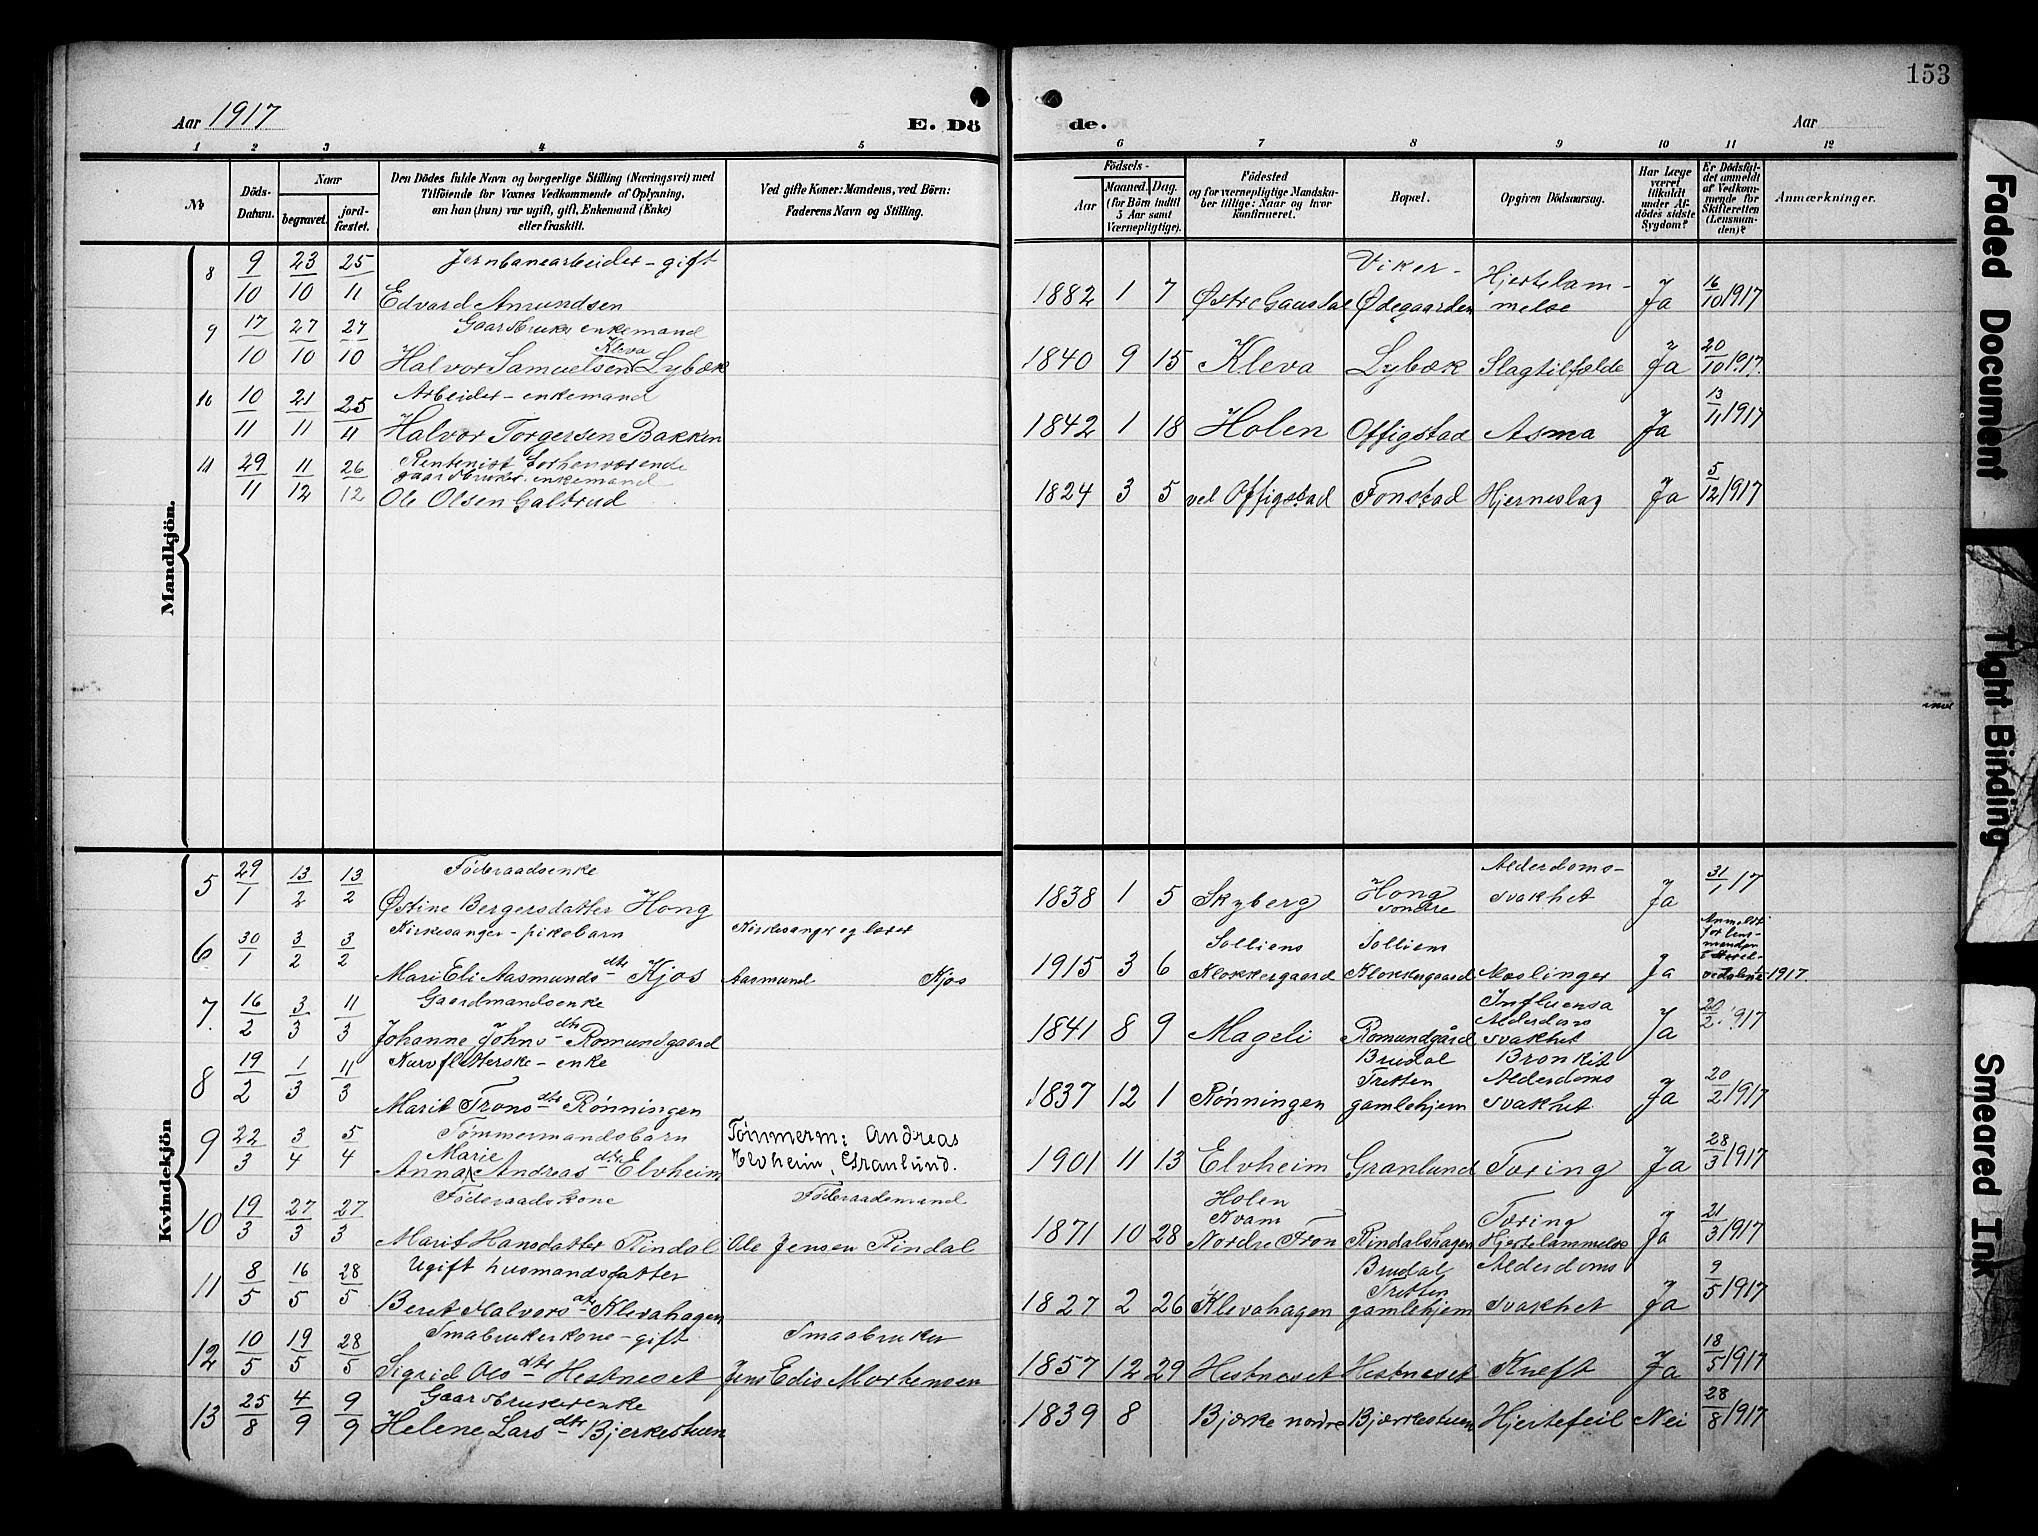 153
Aar 1917
E. Dö
de.
Aar
1 2 3 4 5 6 7 8 9 10 11 12
№
Döds-Datum.
Naar
begravet.
jordfæstet.
Den Dödes fulde Navn og borgerlige Stilling (Næringsvei) med
Tilföiende for Voxnes Vedkommende af Oplysning,
om han (hun) var ugift, gift, Enkemand (Enke)
eller fraskilt.
Ved gifte Koner: Mandens, ved Börn:
Faderens Navn og Stilling.
Födsels-
Aar
Maaned. Dag.
(for Börn indtil
5 Aar samt
Værnepligtige).
Födested
og for værnepligtige Mandskaber tillige: Naar og hvor
konfirmeret.
Bopæl.
Opgiven Dödsaarsag.
Har Læge
været
tilkaldt
under Afdödes sidste
Sygdom?
Er Dödsfaldet anmeldt
af Vedkommende for
Skifteretten
(Lensmanden)?
Anmærkninger.
Mandkjön.
8 9/10 23/10 25/11 Jernbanearbeider - gift
Edvard Amundsen
1882 1 7 Østre Gaustad Viker-Ødegaarden Hjertelammelse Ja 16/10 1917
9 17/10 27/10 27/10 Gaardbruker enkemand
Halvor Samuelsen Kleva Lybæk
1840 9 15 Kleva Lybæk Slagtilfælde Ja 20/10 1917.
10 10/11 21/11 25/11 Arbeider - enkemand
Halvor Torgersen Bakken
1842 1 18 Holen Offigstad Asma Ja 13/11 1917
11 29/11 11/12 26/12 Rentenist forhenværende
gaardbruker. enkemand
Ole Olsen Galtrud
1824 3 5 vel Offigstad Fonstad Hjerneslag Ja 5/12 1917
Kvindekjön
5 29/1 13/2 13/2 Føderaadsenke
Østine Bergersdatter Hong
1838 1 5 Skyberg Hong søndre Alderdoms-svakhet Ja 31/1 17
6 30/1 3/2 3/2 Kirkesanger - pikebarn
Mari Eli Aasmunds dtr Kjos
Kirkesanger og lærer
Aasmund Kjos
1915 3 6 Solliens Klokkergaard Solliem Klokkergaard Meslinger Ja Anmeldt for lensmanden 1917.
7. 16/2 3/3 11/3 Gaardmandsenke
Johanne Johns dtr Romundgaard
1841 8 9 Mageli Romundgård Influensa Alderdoms svakhet Ja 20/2. 1917
8 19/2 1/3 11/3 Kurvfletterske - enke
Marit Trons dtr Rønningen
1837 12 1 Rønningen Brudal Tretten gamlehjem Bronkit Alderdoms svakhet Ja 20/2 1917
9 22/3 3/4 5/4 Tømmermandsbarn
Anna Marie Andreas dtr Elvheim
Tømmerm: Andreas
Elvheim, Granlund.
1901 11 13 Elvheim Granlund Tæring Ja 28/3 1917
10 19/3 27/3 27/3 Føderaadskone
Marit Hansdatter Rindal
Føderaadsmand
Ole Jensen Rindal
1871 10 28 Holen Kvam Nordre Fron Rindalshagen Tæring Hjertelammelse Ja 21/3 1917
11 8/5 16/5 28/5 Ugift husmandsdatter
Beret Halvors dtr Klevahagen
1827 2 26 Klevahagen Brudal Tretten gamlehjem Alderdoms svakhet Ja 9/5 1917
12 10/5 19/5 28/5 Smabrukerkone - gift
Sigrid Ols dtr Hestneset
Smaabruker
Jens Edis Mortensen
1857 12 29 Hestneset Hestneset Kræft Ja 18/5 1917
13 25/8 4/9 9/9 Gaardbrukerenke
Helene Lars dtr Bjerkestuen
1839 8 Bjærke nordre Bjærkestuen Hjertefeil Nei 28/8 1917
Faded Document
Tight Binding
Smeared Ink